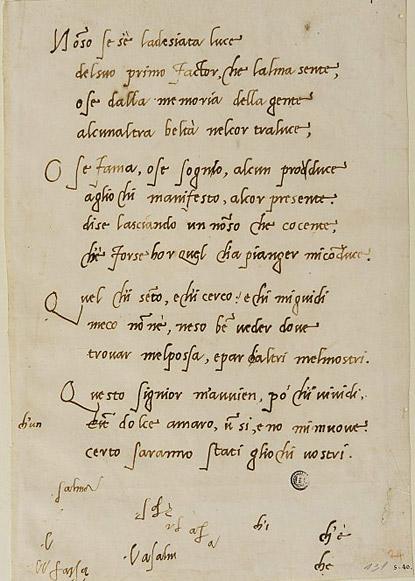 Nõso se s'è ladesiata luce
delsuo primo factor, che lalma sente,
o se dalla memoria della gente
alcunaltra beltà nelcor traluce,
O se fama, o se sognio, alcun prodduce
agliochi manifesto, alcor presente.
dise lasciando un nõso che cocente,
chè forse hor quel cha pianger micõduce.
Quel chi sẽto, e chi cerco: e chi miguidi
meco nõ nè, neso bẽ veder dove
trovar melpossa, e par chaltri melmostri.
Questo signior mavvien, po' chi vi vidi,
chun
dolce amaro, ũ si, e no mi muove:
certo saranno stati gliochi vostri.
salmo
chi
ch'è
che